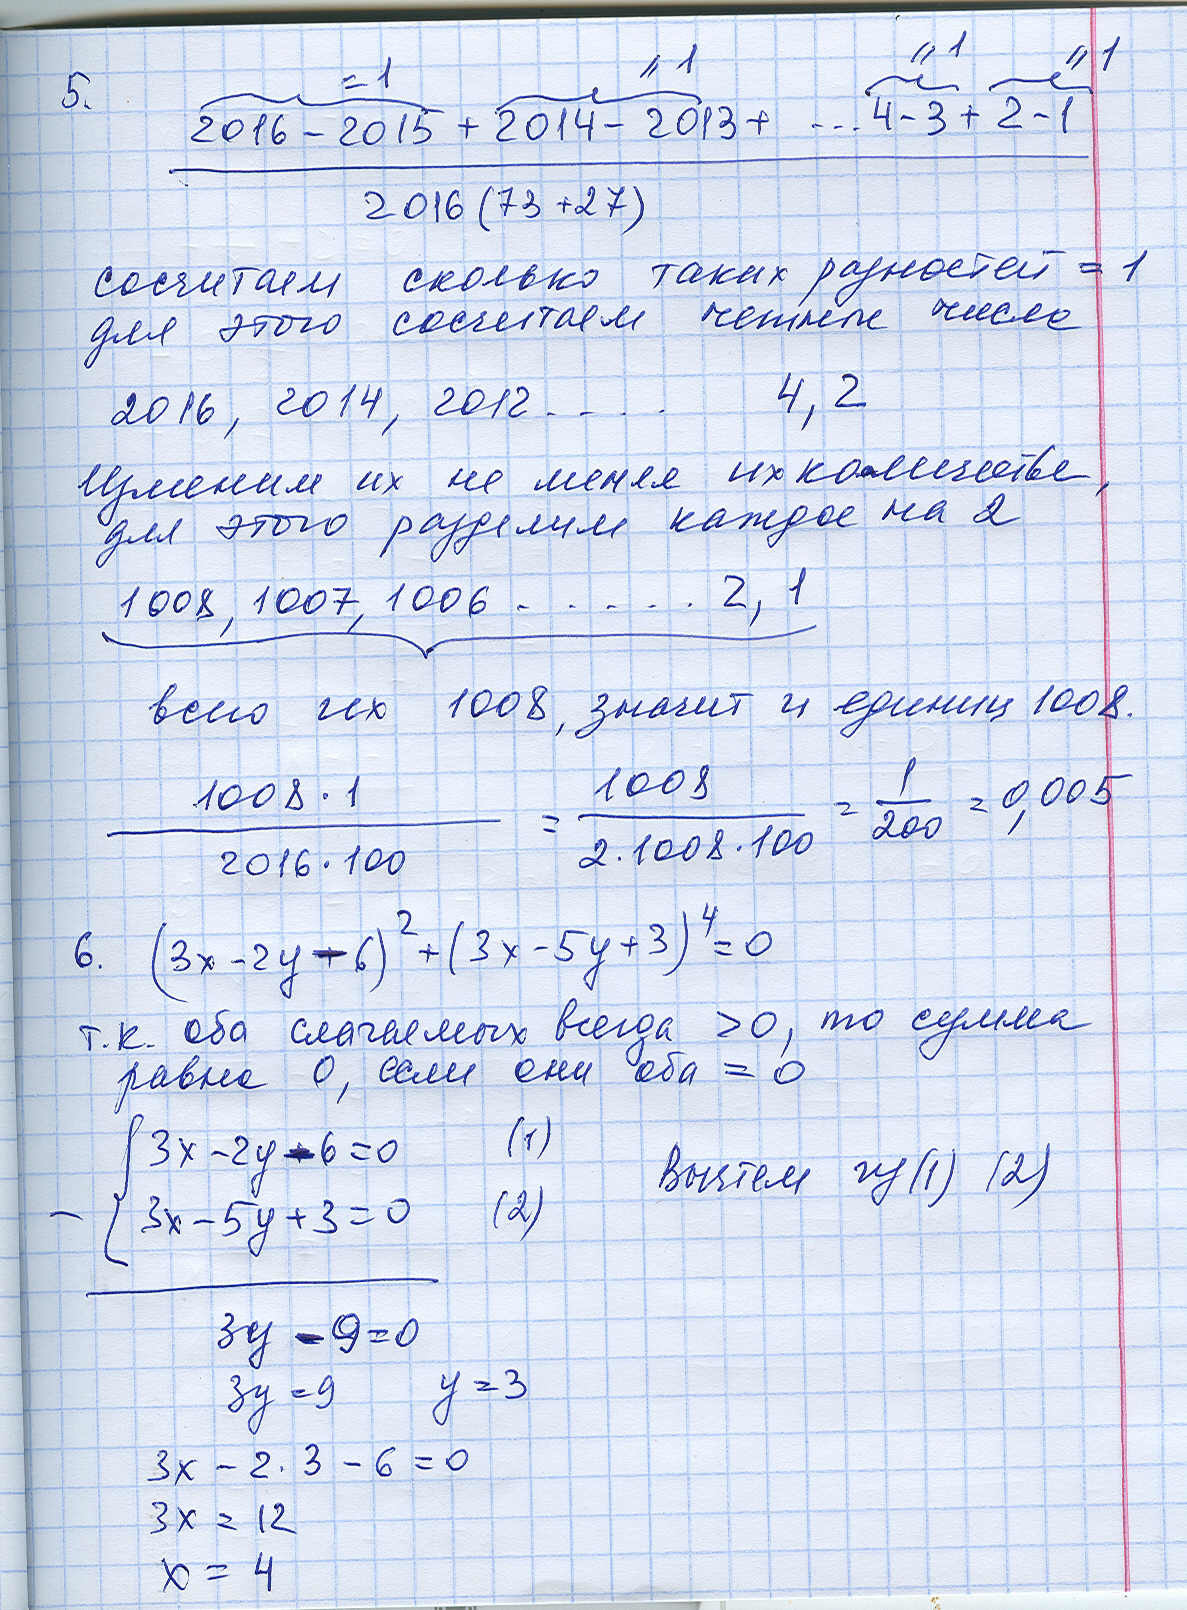 5.
= 1 = 1 = 1 = 1
2016 - 2015 + 2014 - 2013 + ... 4 - 3 + 2 - 1
2016 (73 + 27)
сосчитаем сколько таких разностей = 1
для этого сосчитаем четные числа
2016, 2014, 2012 ..... 4, 2
Изменим их не меняя их количества,
для этого разделим каждое на 2
1008, 1007, 1006 ...... 2, 1
всего их 1008, значит и единиц 1008.
1008 · 1 / 2016 · 100 = 1008 / 2 · 1008 · 100 = 1 / 200 = 0,005
6. (3x - 2y - 6)² + (3x - 5y + 3)⁴ = 0
т.к. оба слагаемых всегда > 0, то сумма
равна 0, если они оба = 0
3x - 2y - 6 = 0 (1)
Вычтем из (1) (2)
- 3x - 5y + 3 = 0 (2)
3y - 9 = 0
3y = 9 y = 3
3x - 2 · 3 - 6 = 0
3x = 12
x = 4